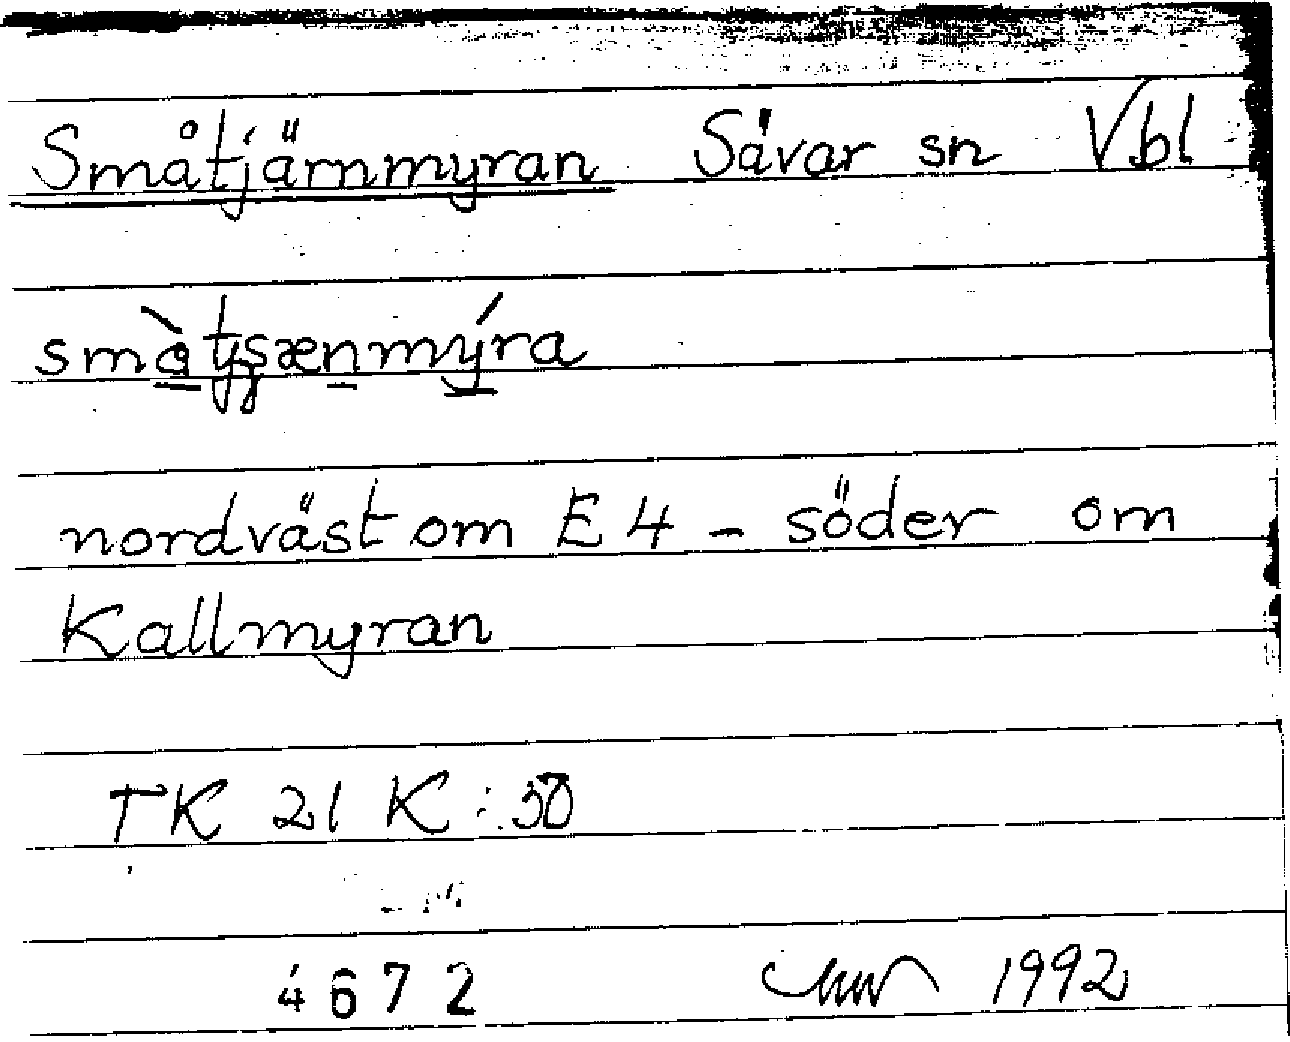 Småtjärnmyran Sävar sn Vbl
nordväst om E4 - söder om
Kallmyran
TK 21 K: 50
4672 1992